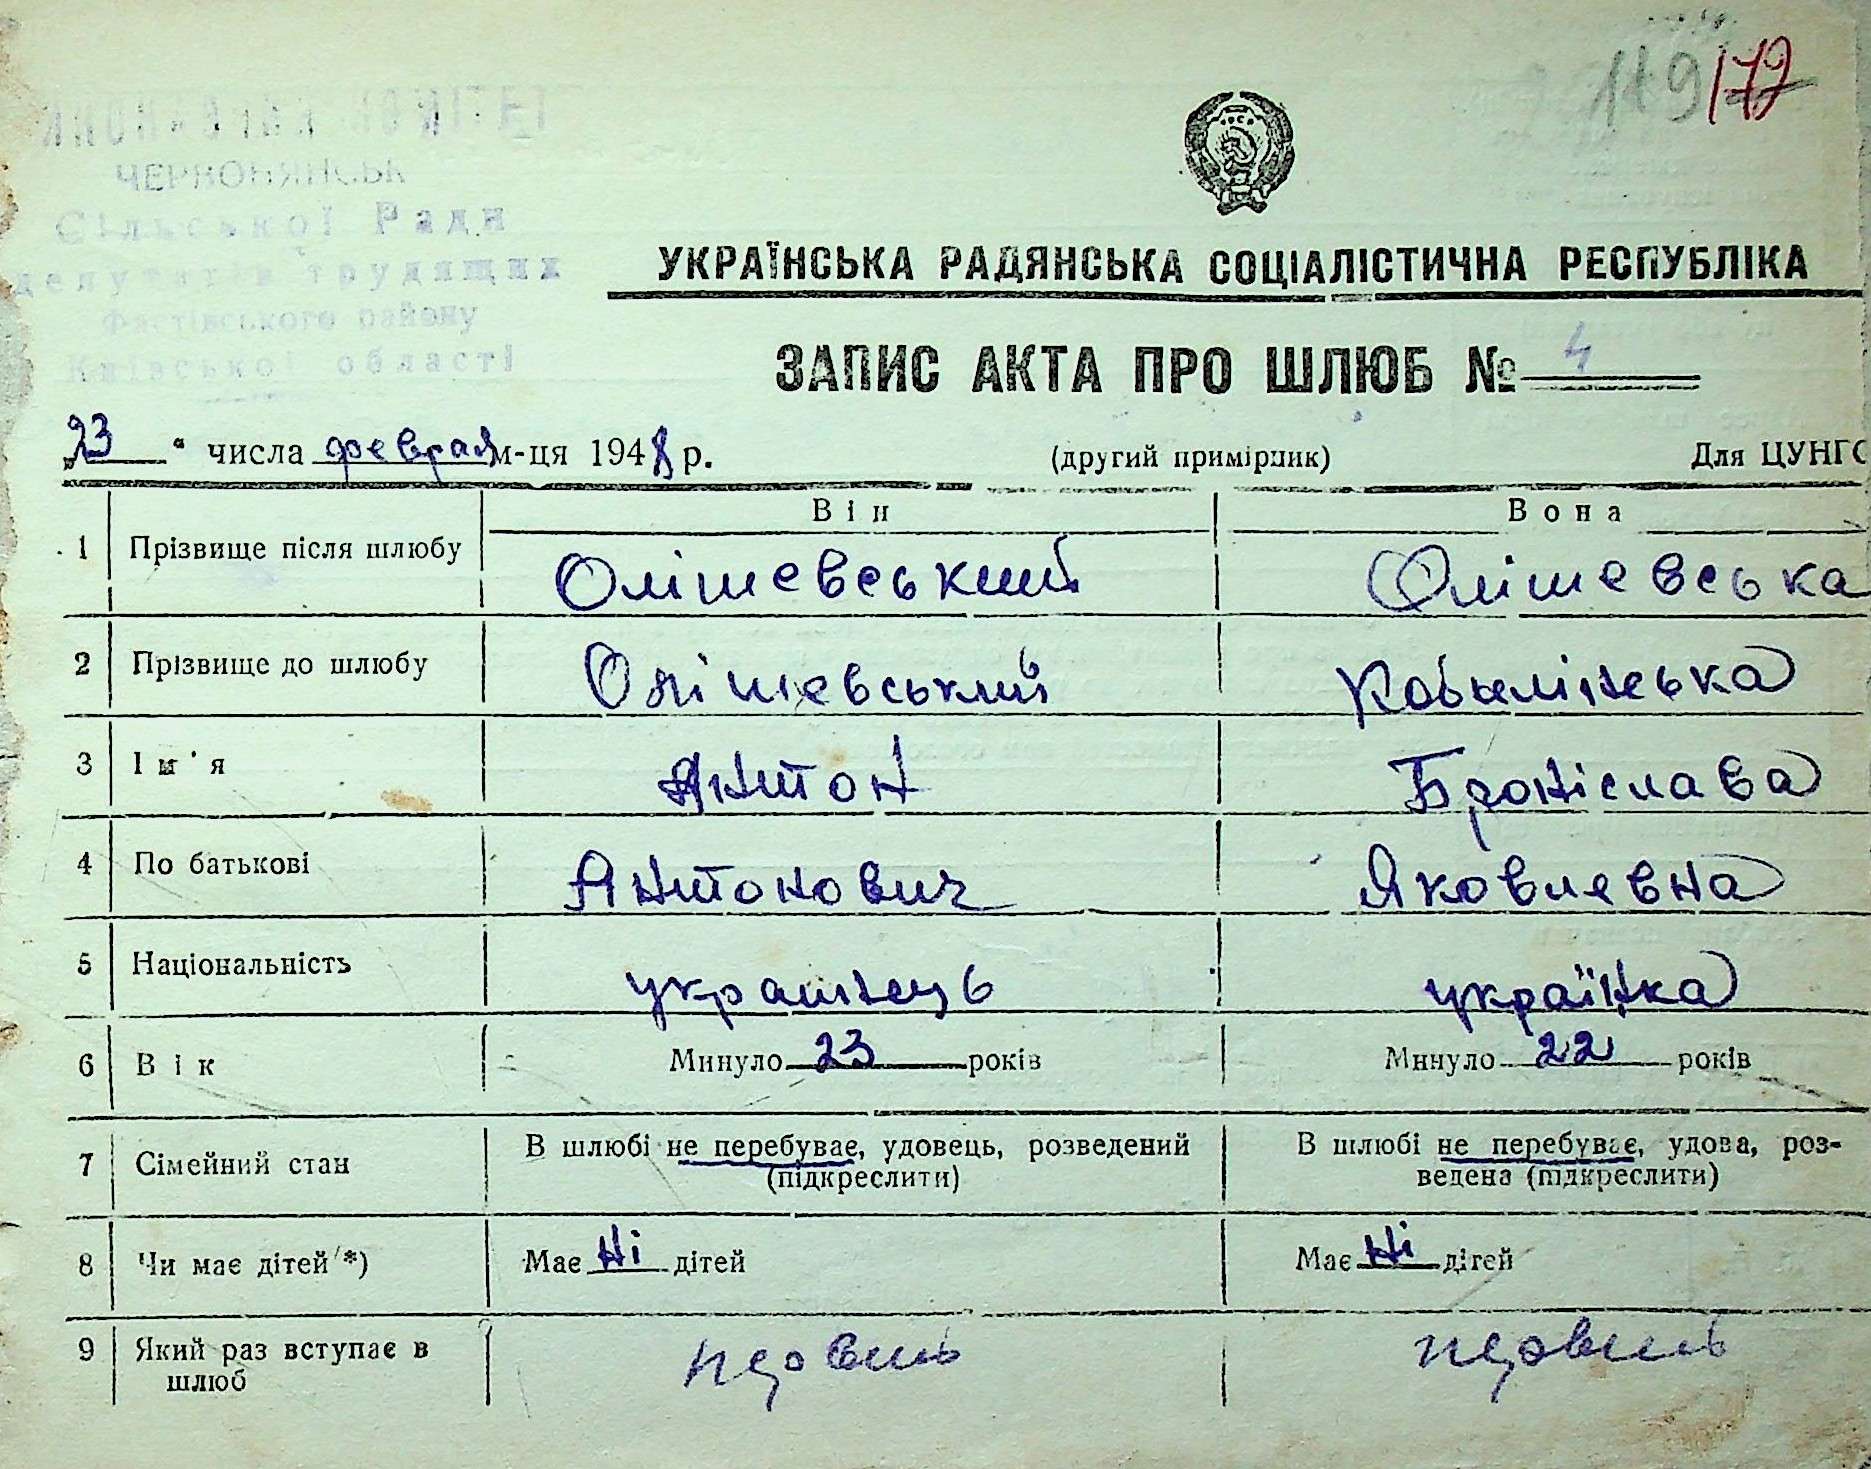 119 172
КОМІТЕТ
ЧЕРВОНЯНСЬК
Сільської Ради
депутатів трудящих
Фастівського району
Київської області
УКРАЇНСЬКА РАДЯНСЬКА СОЦІАЛІСТИЧНА РЕСПУБЛІКА
ЗАПИС АКТА ПРО ШЛЮБ № 4
„23" числа февраля м-ця 1948 р. (другий примірник) Для ЦУНГО
Він Вона
1 Прізвище після шлюбу Олішевський Олішевська
2 Прізвище до шлюбу Олішевський
3 Ім'я Антон Броніслава
4 По батькові Антонович Яковлевна
5 Національність украинець українка
6 Вік Минуло 23 років Минуло 22 років
7 Сімейний стан В шлюбі не перебуває, удовець, розведений В шлюбі не перебуває, удова, роз-
(підкреслити) ведена (підкреслити)
8 Чи має дітей *) Має Ні дітей Має Ні дітей
9 Який раз вступає в
шлюб